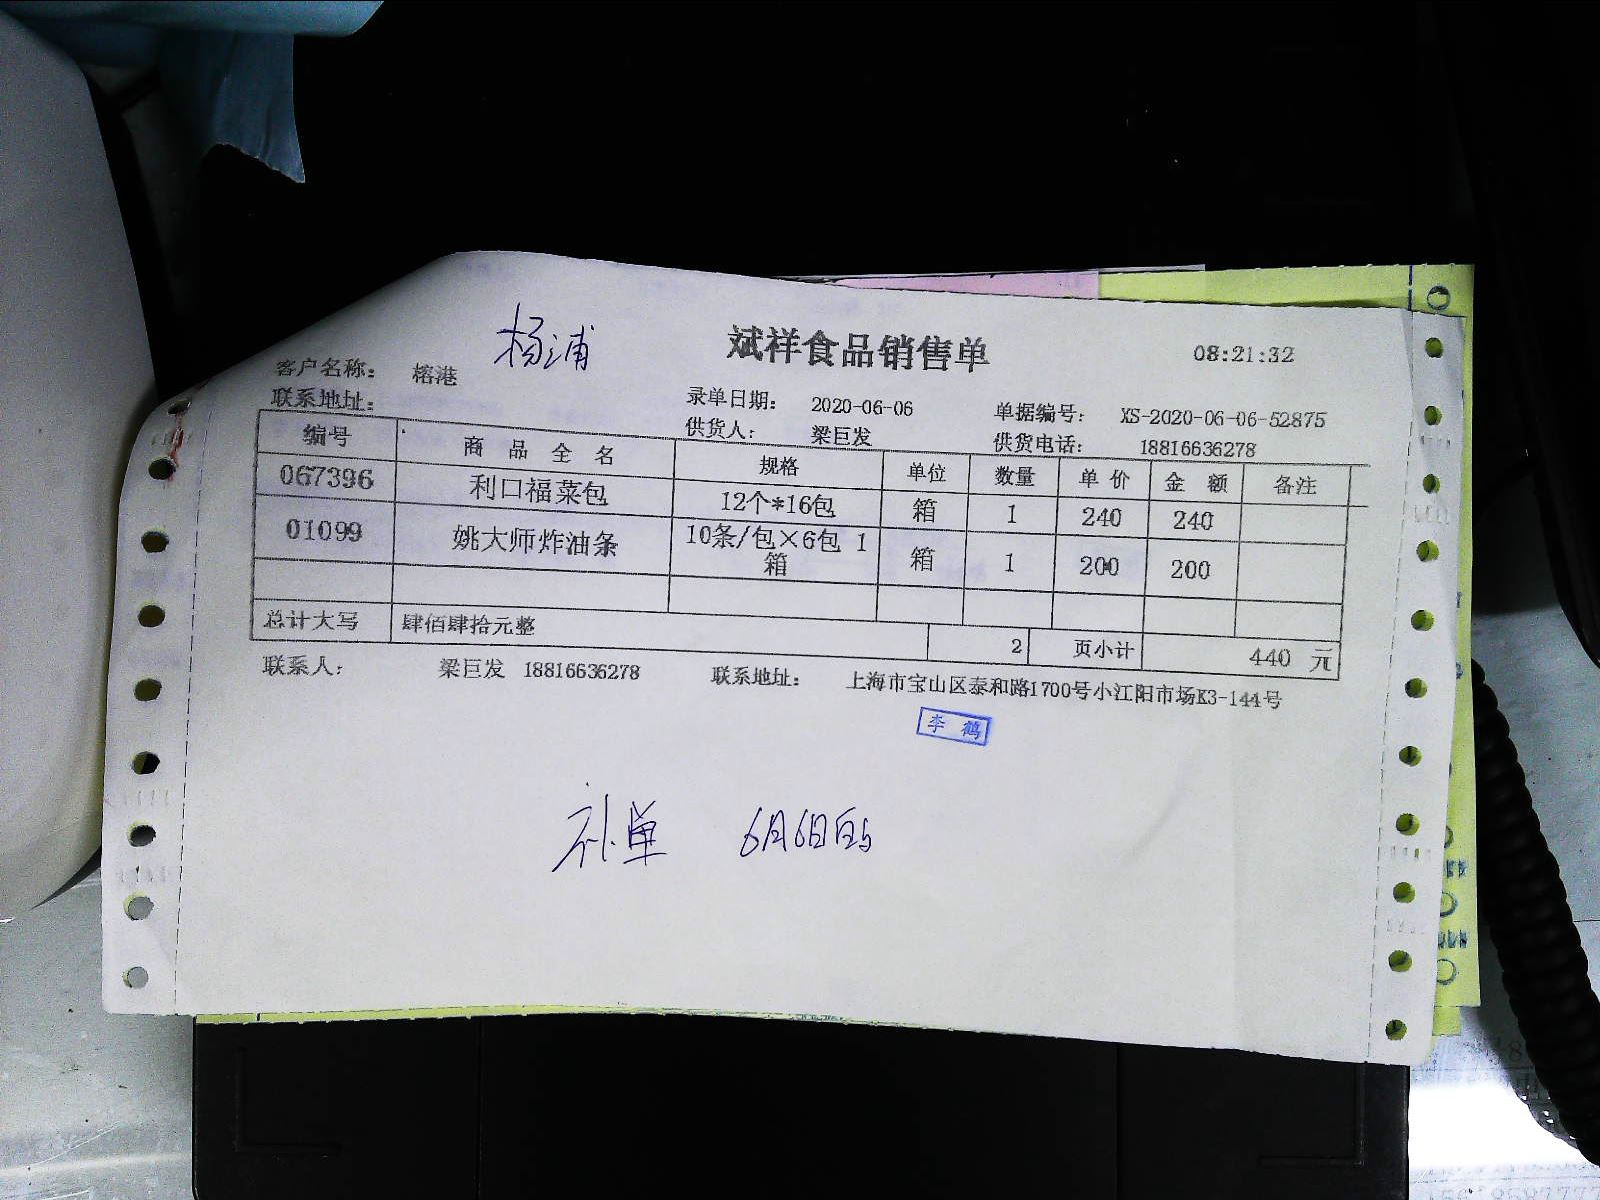 杨浦
斌祥食品销售单
08:21:32
客户名称: 榕港
联系地址:
录单日期: 2020-06-06 单据编号: XS-2020-06-06-52875
供货人: 梁巨发 供货电话: 18816636278
编号 商品全名 规格 单位 数量 单价 金额 备注
067396 利口福菜包 12个*16包 箱 1 240 240
01099 姚大师炸油条 10条/包×6包 1箱 箱 1 200 200
总计大写 肆佰肆拾元整 2 页小计 440 元
联系人: 梁巨发 18816636278 联系地址: 上海市宝山区泰和路1700号小江阳市场K3-144号
李鹤
补单 6月6日的